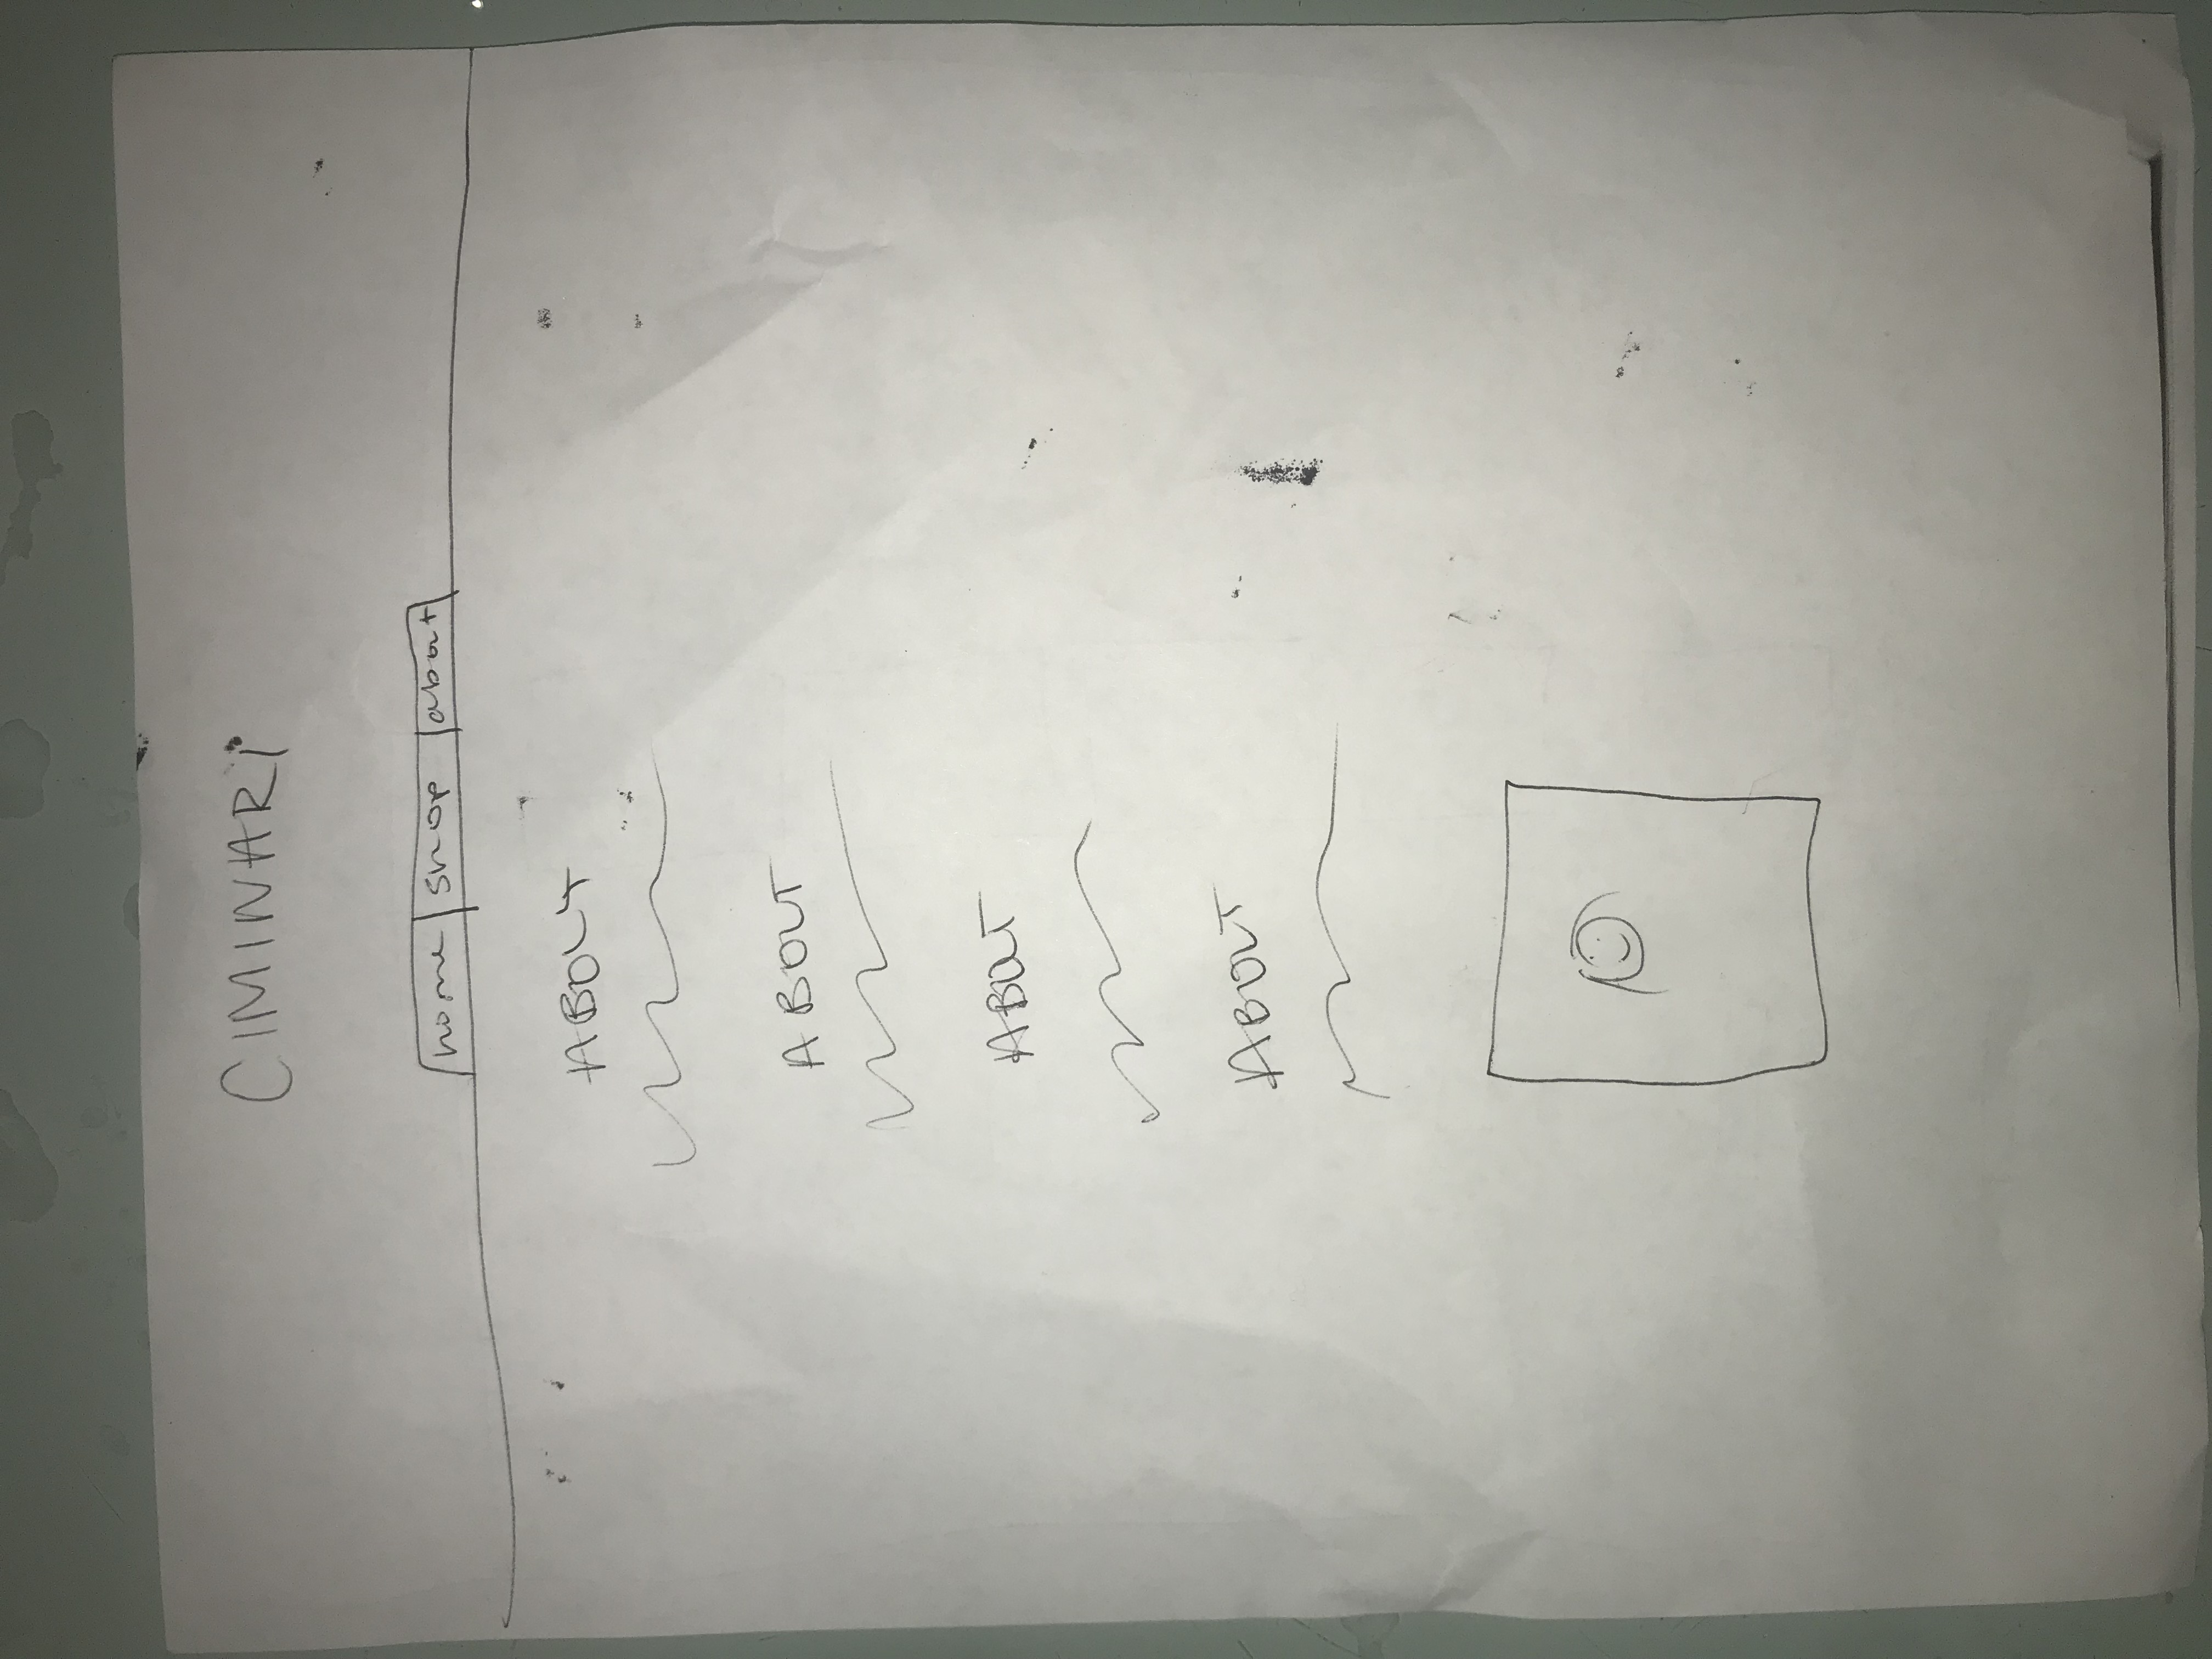 CIMINARI
home shop about
ABOUT
ABOUT
ABOUT
ABOUT